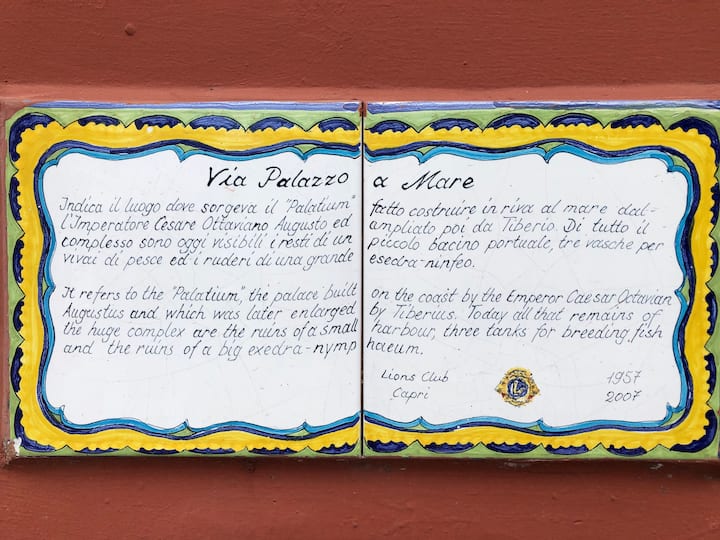 Via Palazzo a Mare
Indica il luogo dove sorgeva il "Palatium" fatto costruire in riva al mare dal-
l'Imperatore Cesare Ottaviano Augusto ed ampliato poi da Tiberio. Di tutto il
complesso sono oggi visibili i resti di un piccolo bacino portuale, tre vasche per
vivai di pesce ed i ruderi di una grande esedra-ninfeo.
It refers to the "Palatium", the palace built on the coast by the Emperor Caesar Octavian
Augustus and which was later enlarged by Tiberius. Today all that remains of
the huge complex are the ruins of a small harbour, three tanks for breeding fish
and the ruins of a big exedra-nymphaeum.
Lions Club 1957
Capri 2007